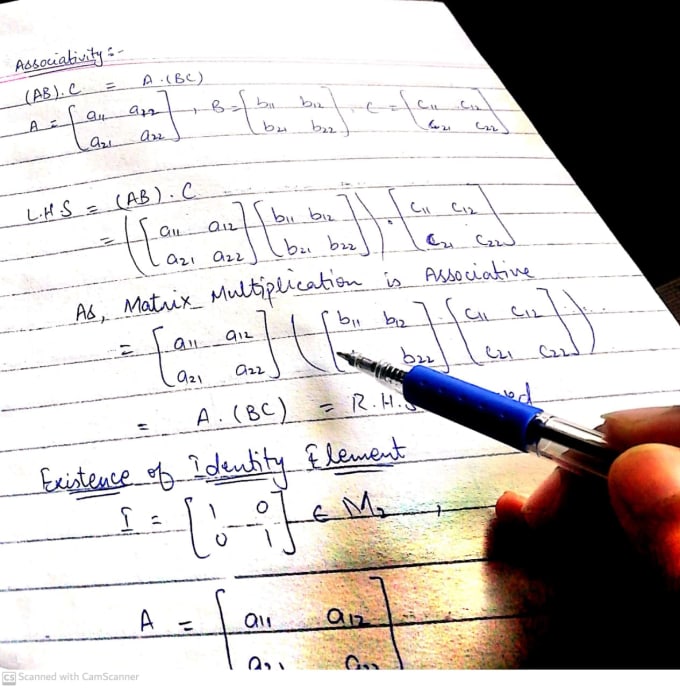 Associativity :-
(AB).C = A.(BC)
A = [a11 a12 a21 a22], B = [b11 b12 b21 b22], C = [c11 c12 c21 c22]
L.H.S = (AB).C
= ([a11 a12 a21 a22] [b11 b12 b21 b22]). [c11 c12 c21 c22]
As, Matrix Multiplication is Associative
= [a11 a12 a21 a22] ([b11 b12 b22] [c11 c12 c21 c22])
= A.(BC) = R.H.S
Existence of Identity Element
I = [1 0 0 1] ∈ M2,
A = [a11 a12
a21 a22]
CS Scanned with CamScanner